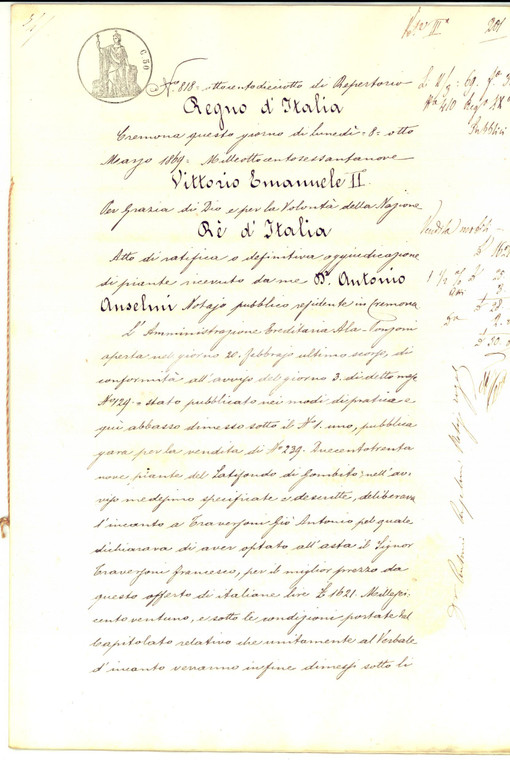 C. 50
N.° 818= ottocentodiciotto di Repertorio
Regno d'Italia
Cremona questo giorno di lunedì =8= otto
Marzo 1869= Milleottocentosessantanove
Vittorio Emanuele II.
Per Grazia di Dio e per la Volontà della Nazione
Rè d'Italia
Atto di ratifica e definitiva aggiudicazione
di piante ricevuto da me Dr. Antonio
Anselmi Notajo pubblico residente in Cremona
L'Amministrazione Ereditaria Ala-Ponzoni
aperta nel giorno 20. febbrajo ultimo scorso, di
conformità all'avviso del giorno 3. di detto mese
N.° 129= stato pubblicato nei modi di pratica e
qui abbasso dimesso sotto il N.° 1. uno, pubblica
gara per la vendita di N.° 239. Duecentotrenta
nove piante del Latifondo di Gombito; nell'av-
viso medesimo specificate e descritte, deliberava
l'incanto a Traversoni Gio Antonio pel quale
dichiarava di aver optato all'asta il Signor
Traversoni Francesco, per il miglior prezzo da
questo offerto di italiane lire £ 1621. Millesei-
cento ventuno, e sotto le condizioni portate dal
Capitolato relativo che unitamente al Verbale
d'incanto verranno infine dimessi sotto li
201
Vendita mobili